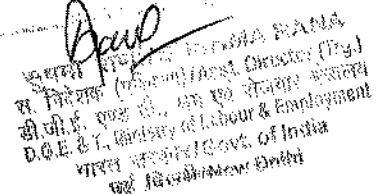 RANA
स. निदेशक (प्रशि०)/Asst. Director (Trg.)
डी.जी.ई. एण्ड टी., श्रम एवं रोजगार मंत्रालय
D.G.E. & T., Ministry of Labour & Employment
भारत सरकार/Govt. of India
नई दिल्ली/New Delhi